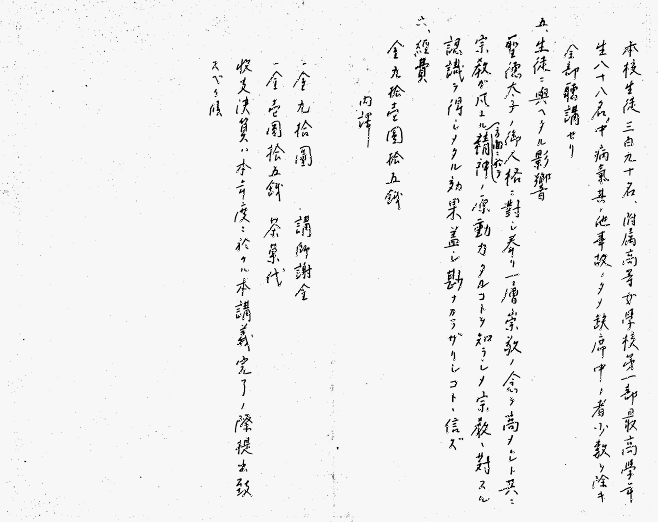 本校生徒三百九十名、附属高等女學校第一部最高學年
生八十八名中病氣其ノ他事故ノタメ缺席中ノ者少数ヲ除キ
全部聽講セリ
五、生徒ニ與ヘタル影響
聖徳太子ノ御人格ニ對シ奉リ一層崇敬ノ念ヲ高メシト共ニ
宗教ガ凡ユル精神ノ原動力タルコトヲ知ラシメ宗教ニ對スル
認識ヲ得シメタル効果蓋シ尠ナカラザリシコトヽ信ズ
六、經費
金九拾壱圓拾五錢
内譯
一金九拾圓 講師謝金
一金壱圓拾五錢 茶菓代
收支決算ハ本年度ニ於ケル本講義完了ノ際提出致
スベク候